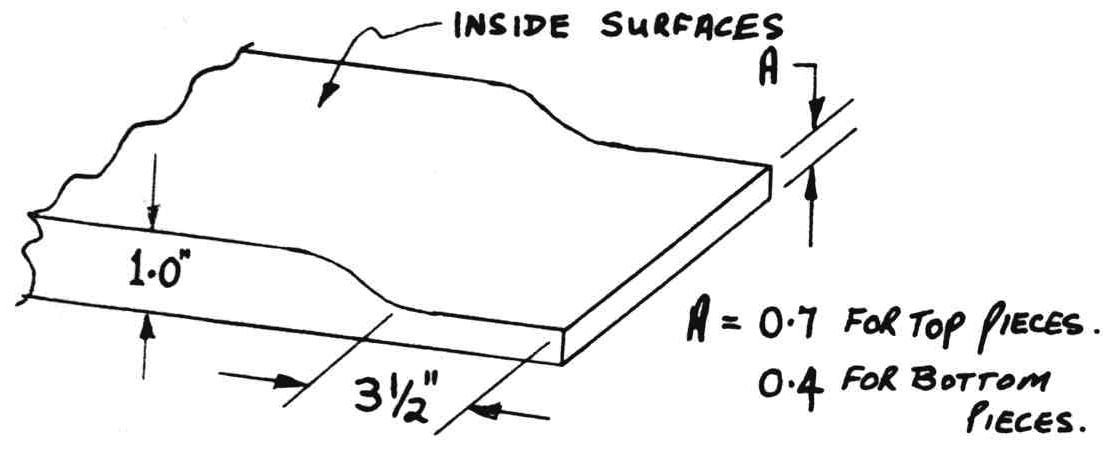 INSIDE SURFACES
A
1.0"
3½"
A = 0.7 FOR TOP PIECES.
0.4 FOR BOTTOM
PIECES.